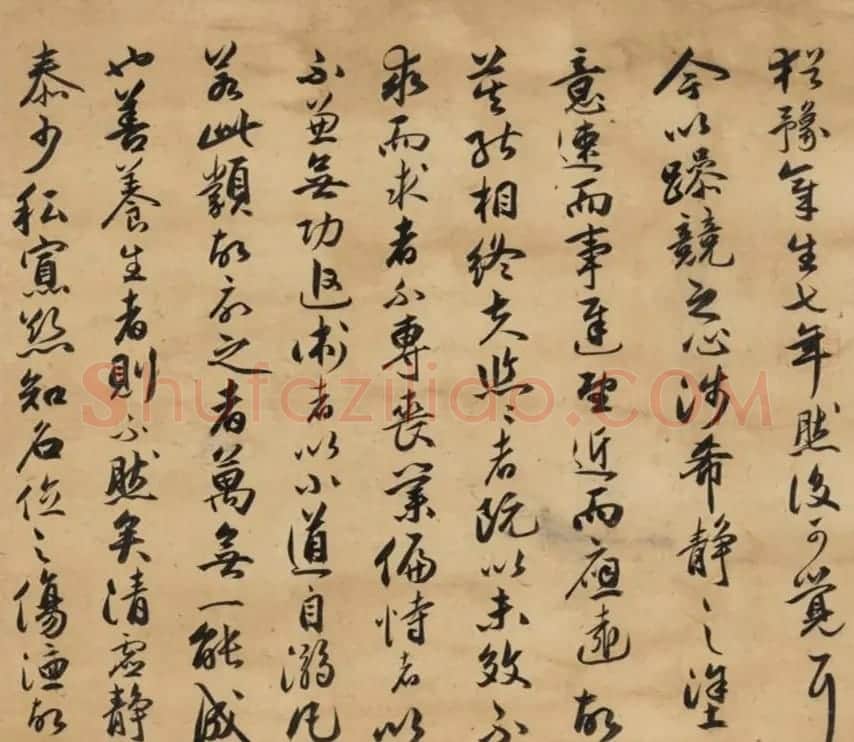 猶豫章生七年然後可覺耳
今以躁競之心涉希靜之塗
意速而事遲望近而應遠故
莫能相終夫悠〻者既以未效不
求而求者不專喪業偏恃者以
不兼無功追術者以小道自溺凡
若此類故欲之者萬無一能成
也善養生者則不然矣清虛靜
泰少私寡欲知名位之傷德故
Shufaziliao.COM